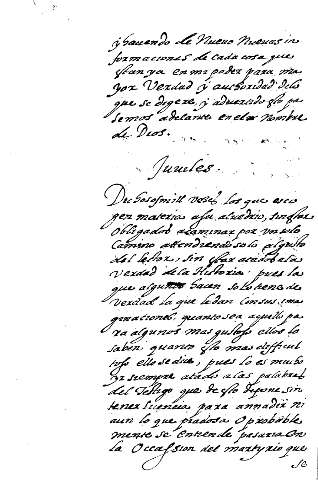 y haciendo de Nuevo Nuevas in
formaciones de cada cosa que
estan ya en mi poder para ma
yor Verdad y authoridad delo
que se digere, y advertido esto pa
semos adelante en el Nombre
de Dios.
Jueves.
Dichosos mill veses los que esco
gen materia a su alvedrio, sin ser
obligados a caminar por un solo
camino attendiendo solo al gusto
del lector, sin estar atados a la
verdad de la Historia pues las
que algunos hacen solo tiene de
verdad la que le dan con sus ima
ginaciones, quanto son aquellos pa
ra algunos mas gustosos ellos lo
saben quanto esto mas dificul
toso ello se dice, pues lo es mucho
yr siempre atado a las palabras
del Testigo que de esto depone sin
tener licencia para annadir ni
aun lo que piadosa o probable
mente se entiende pasaria en
la occassion del martyrio que
se